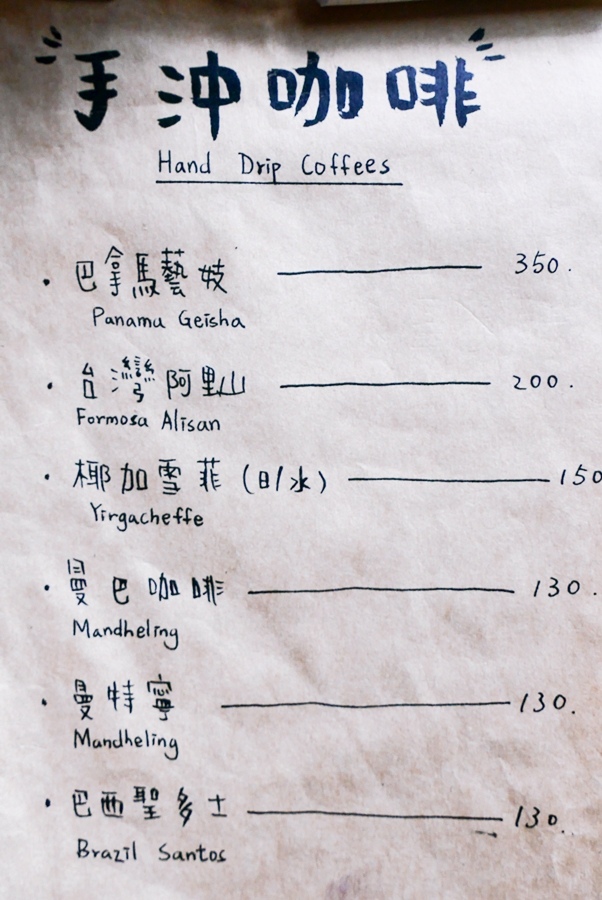 手沖咖啡
Hand Drip Coffees
・巴拿馬藝妓 350.
Panama Geisha
・台灣阿里山 200.
Formosa Alisan
・椰加雪菲(日/水) 150
Yirgacheffe
・曼巴咖啡 130.
Mandheling
・曼特寧 130.
Mandheling
・巴西聖多士 130.
Brazil Santos